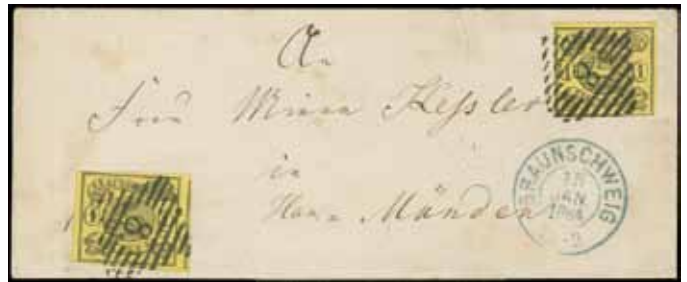 An
Frau Minna Kessler
in
Hann. Münden
1 1
8
BRAUNSCHWEIG
18
JAN
1864
1
8